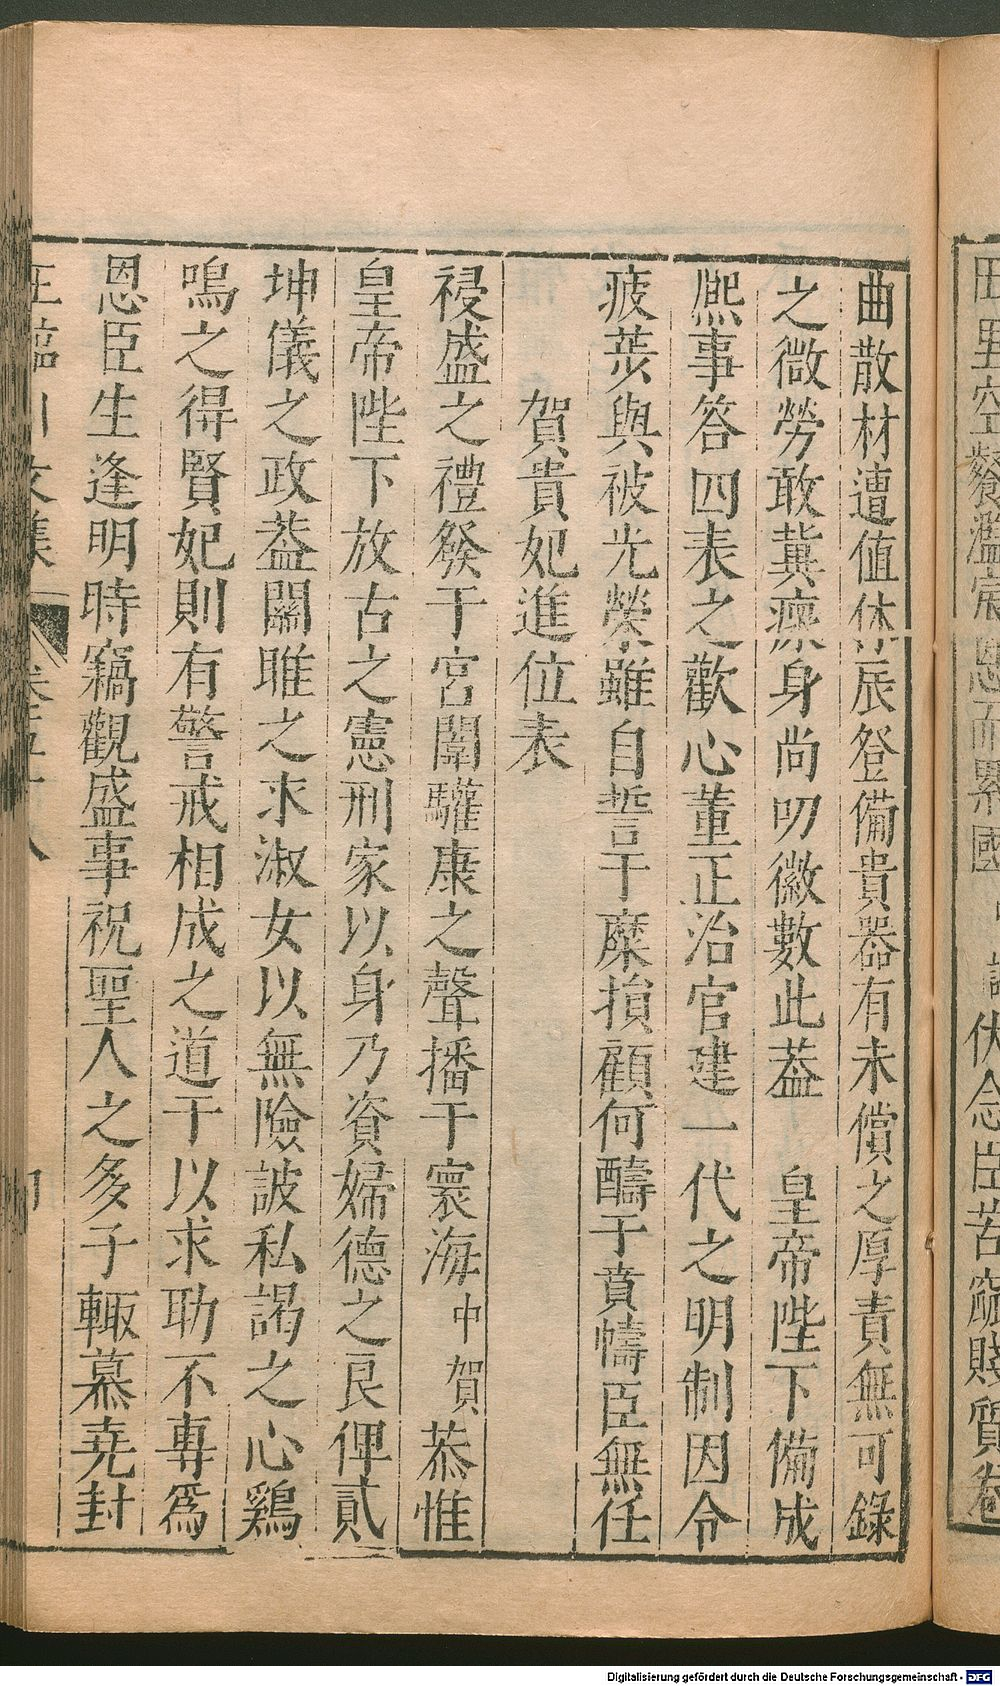 田里空餐濫宼恩而累國 中謝伏念臣苦窳賤質卷
曲散材遭值休辰登備貴器有未償之厚責無可錄
之微勞敢冀瘝身尚叨徽數此葢 皇帝陛下備成
熈事答四表之歡心董正治官建一代之明制因令
疲荼與被光榮雖自誓于糜損顧何醻于賁幬臣無任
賀貴妃進位表
祲盛之禮發于宮闈驩康之聲播于寰海中賀恭惟
皇帝陛下放古之憲刑家以身乃資婦德之良俾貳
坤儀之政葢關雎之求淑女以無險詖私謁之心鷄
鳴之得賢妃則有警戒相成之道于以求助不專爲
恩臣生逢明時竊觀盛事祝聖人之多子輙慕堯封
王臨川文集 卷五十八
Digitalisierung gefördert durch die Deutsche Forschungsgemeinschaft - DFG